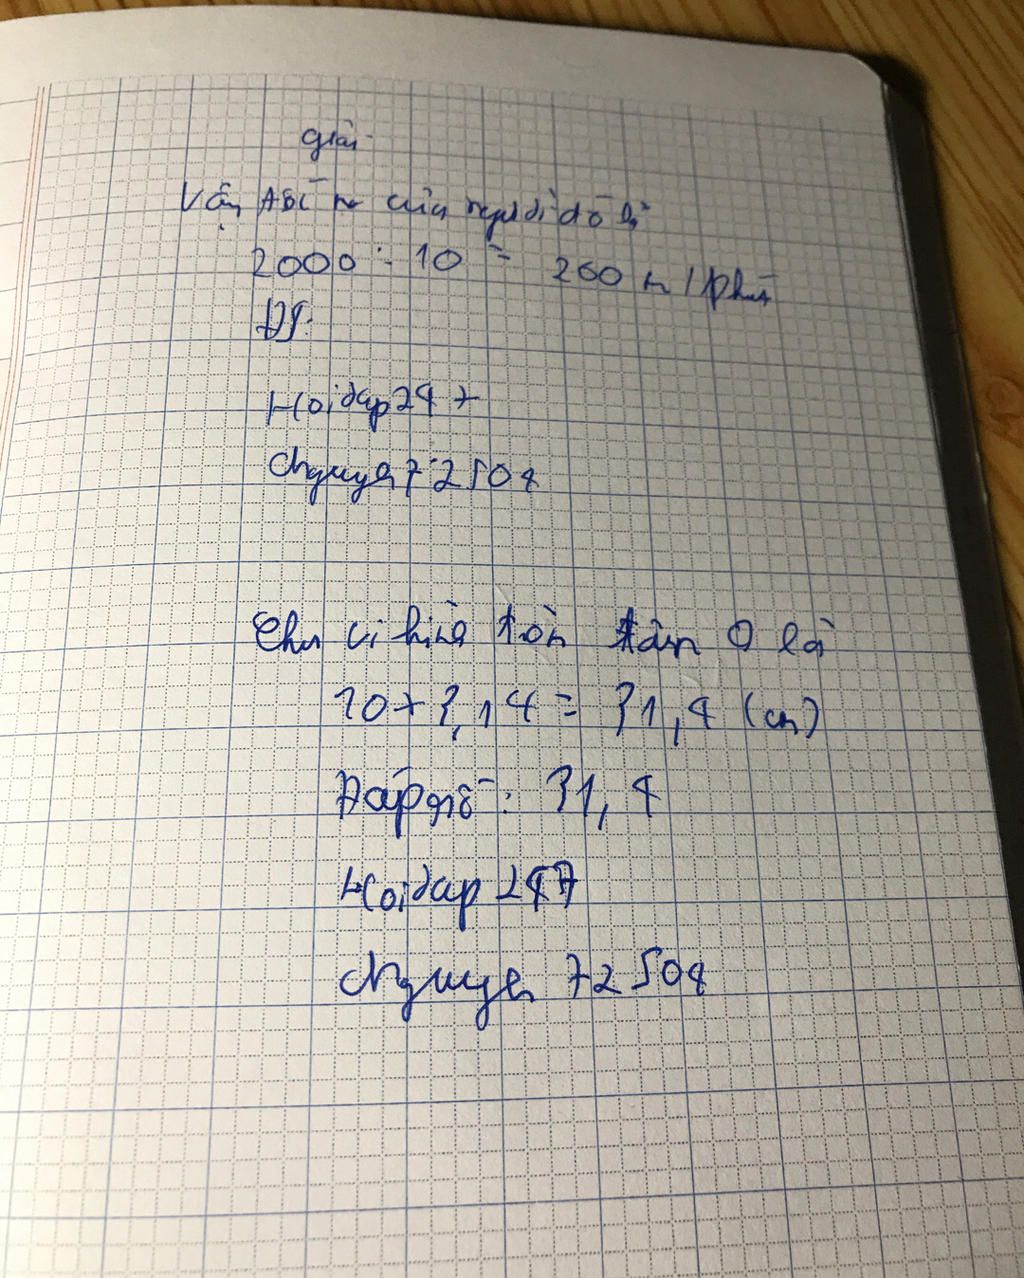 giải
Vận tốc của người đó là
2000 : 10 = 200 m/phút
ĐS:
Hoidap247
nguyen72508
Chu vi hình tròn tâm O là
10 x 3,14 = 31,4 (cm)
Đáp số: 31,4
Hoidap247
nguyen72508